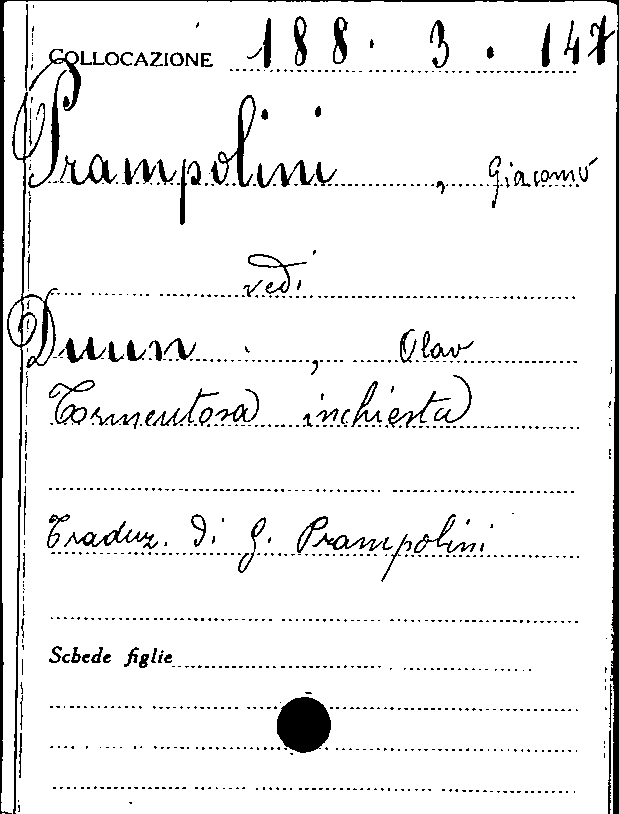 COLLOCAZIONE 188. 3. 147
Prampolini, Giacomo
vedi
Duun, Olav
Tormentosa inchiesta
Traduz. di G. Prampolini
Schede figlie